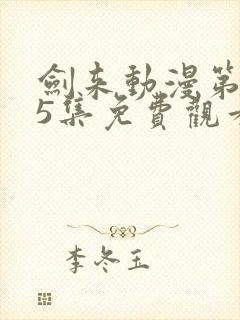 劍来動漫第
5集免費觀
李冬玉